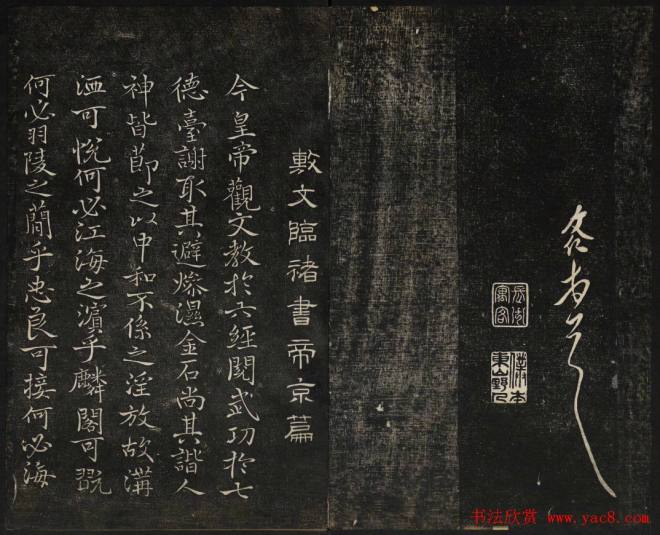 敷文臨褚書帝京篇
今皇帝觀文教於六經閱武功於七
德臺謝取其避燥濕金石尚其諧人
神皆節之以中和不係之淫放故溝
洫可悅何必江海之濵乎麟閣可翫
何必羽陵之蕑乎忠良可接何必海
书法欣赏 www.yac8.com